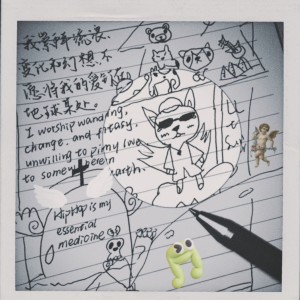 我崇拜流浪,
变化和幻想,不
愿将我的爱钉在
地球某处。
I worship wandering,
change, and fantasy,
unwilling to pin my love
to somewhere in
earth.
HipHop is my
essential
medicine